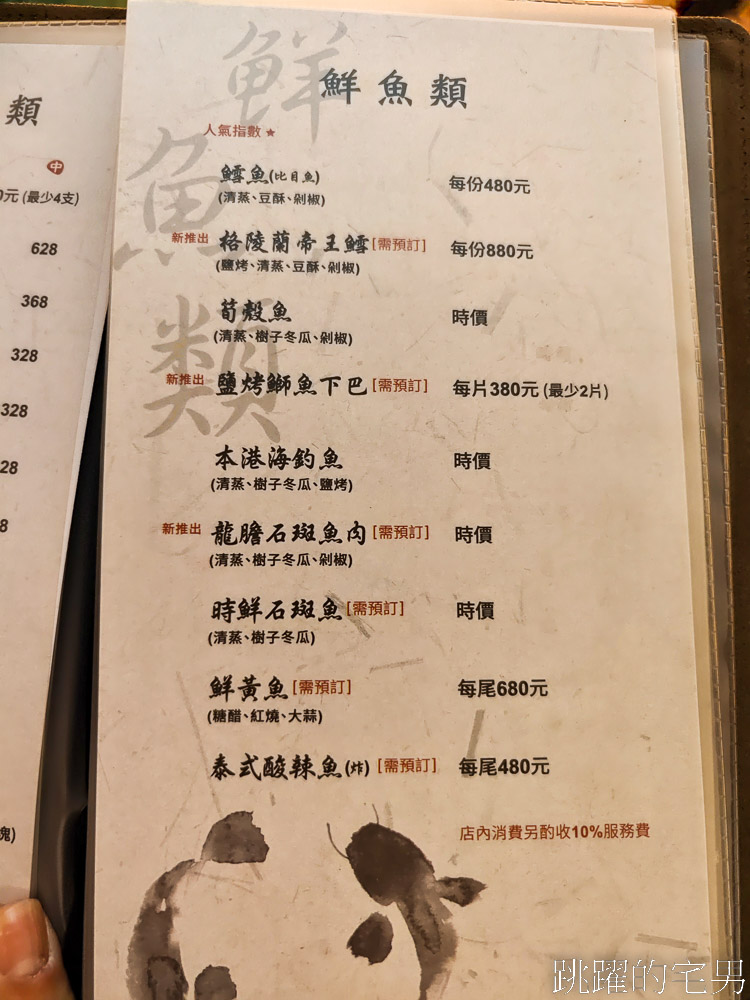 類
中
0元 (最少4支)
628
368
328
328
28
8
塊)
鮮魚類
鮮魚類
人氣指數★
鱈魚(比目魚) 每份480元
(清蒸、豆酥、剁椒)
新推出 格陵蘭帝王鱈[需預訂] 每份880元
(鹽烤、清蒸、豆酥、剁椒)
筍殼魚 時價
(清蒸、樹子冬瓜、剁椒)
新推出 鹽烤鰤魚下巴[需預訂] 每片380元 (最少2片)
本港海釣魚 時價
(清蒸、樹子冬瓜、鹽烤)
新推出 龍膽石斑魚肉[需預訂] 時價
(清蒸、樹子冬瓜、剁椒)
時鮮石斑魚[需預訂] 時價
(清蒸、樹子冬瓜)
鮮黃魚[需預訂] 每尾680元
(糖醋、紅燒、大蒜)
泰式酸辣魚(炸) [需預訂] 每尾480元
店內消費另酌收10%服務費
跳躍的宅男